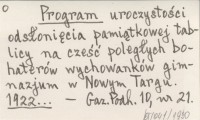 Program uroczystości
odsłonięcia pamiątkowej tab-
licy na cześć poległych bo-
haterów wychowanków gim-
nazjum w Nowym Targu.
1922... – Gaz. Podh. 10, nr 21.